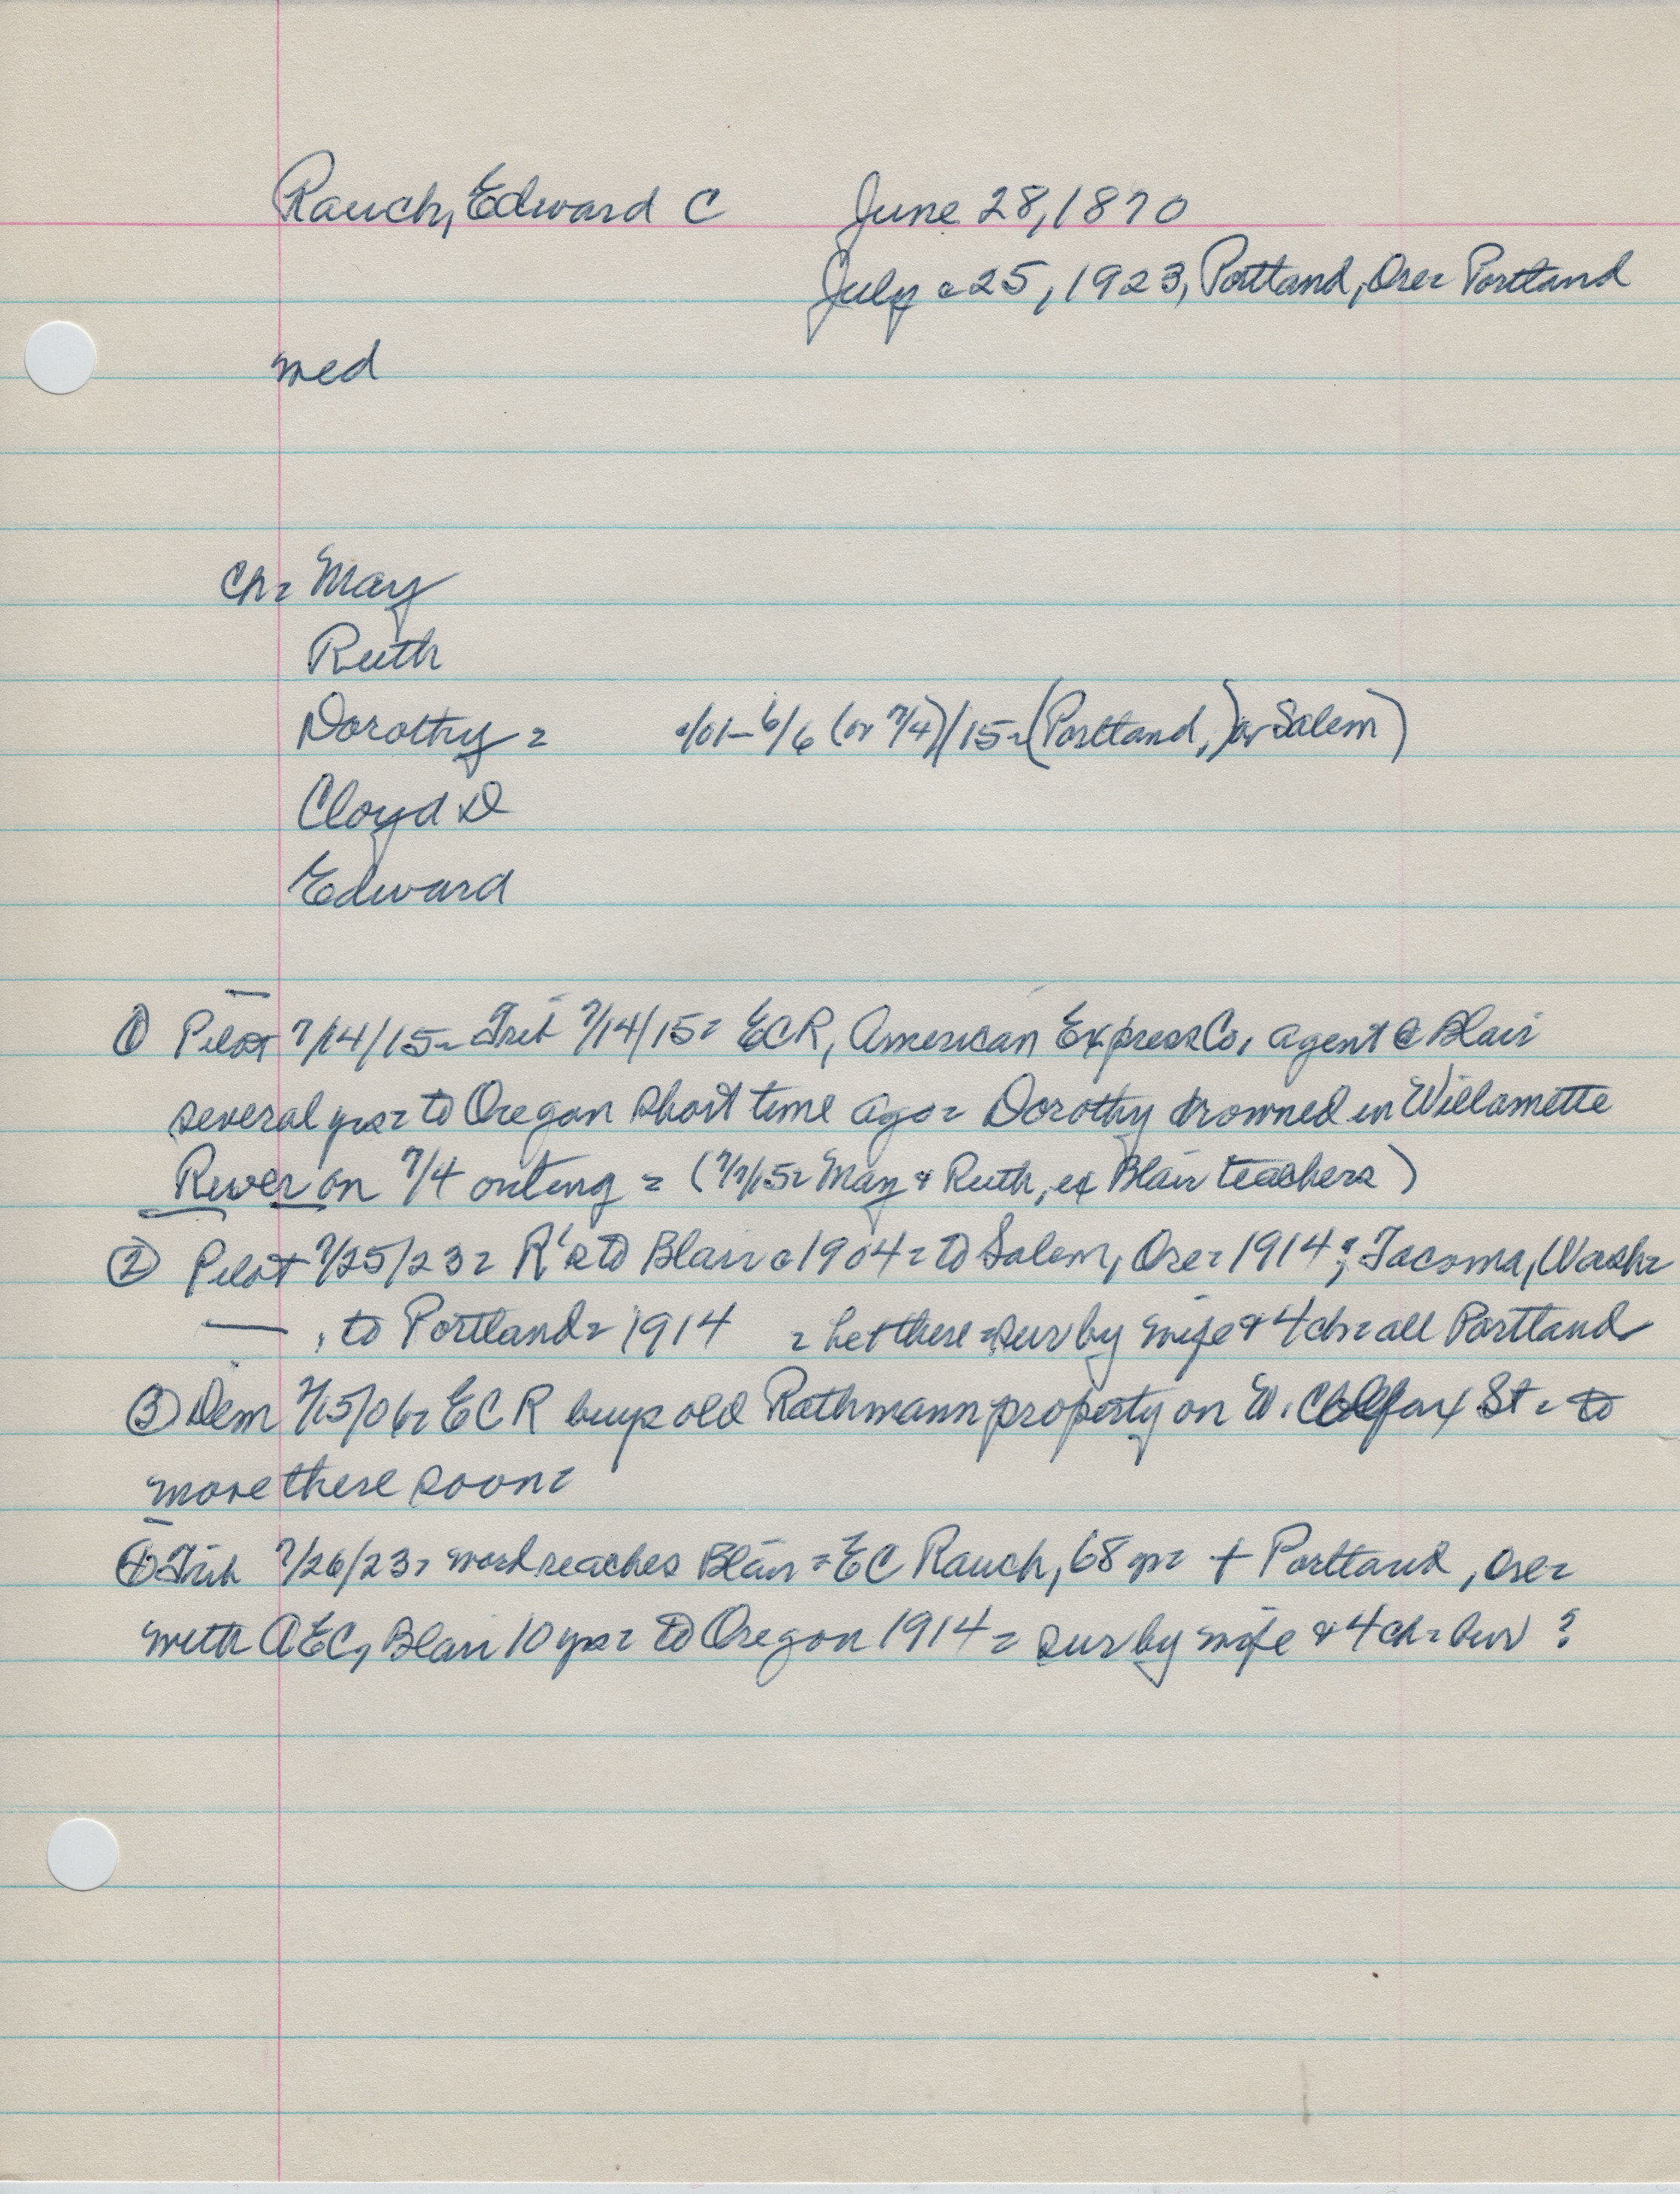 Rauch, Edward C June 28, 1870
July c25, 1923, Portland, Ore= Portland
med
Ch= May
Ruth
Dorothy = c/01- 6/6 (or 7/4)/15=(Portland,) or Salem)
Cloyd D
Edward
① Pilot 7/14/15= Trib 7/14/15= ECR, American Express Co, agent @ Blair
several yrs= to Oregon short time ago= Dorothy drowned in Willamette
River on 7/4 outing = (7/7/15= May & Ruth, ex Blair teachers)
② Pilot 7/25/23= R's to Blair c1904= to Salem, Ore= 1914; Tacoma, Wash=
—, to Portland= 1914 = he+there =sur by wife & 4 ch= all Portland
③ Dem 7/5/06= ECR buys old Rathmann property on W. Colfax St.= to
move there soon=
④ Trib 7/26/23= word reaches Blair= EC Rauch, 68 yr= + Portland, Ore=
with AEC, Blair 10 yrs= to Oregon 1914= sur by wife & 4 ch= bur ?